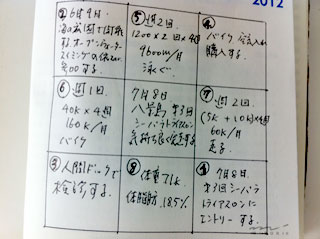 2012
② 6月9日
海の公園で開催
するオープンウォーター
スイミングの
参加する。
⑤ 週2回
1200×2回×4週
9600m/月
泳ぐ
④
バイク
購入する。
⑥ 週1回
40K×4週
160K/月
バイク
7月8日
八景島 第3回
シーパラトライアスロン
気持ち良く完走する
⑦ 週2回
(5K+10K)×4週
60K/月
走る
③ 人間ドックで
検診する。
⑧ 体重 71K
体脂肪 18.5%
① 7月8日
第3回シーパラ
トライアスロンに
エントリーする。